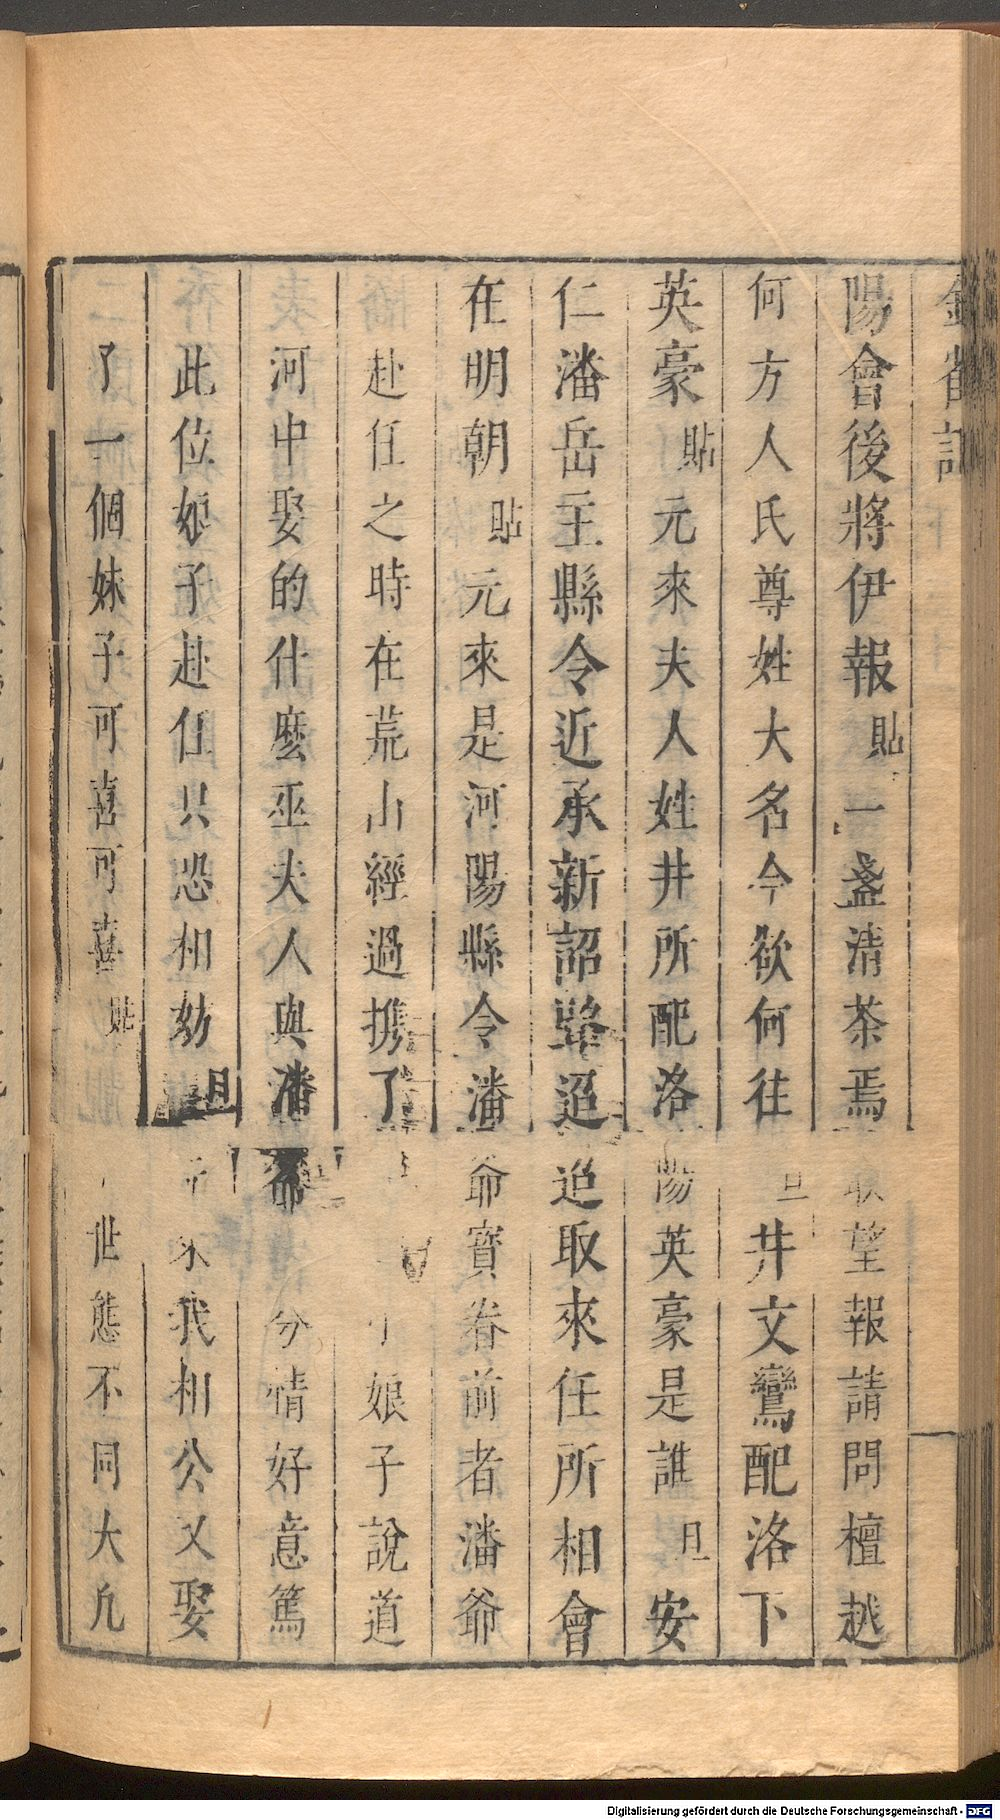 金雀記
陽會後將伊報貼一盞清茶焉敢望報請問檀越
何方人氏尊姓大名今欲何往旦井文鸞配洛下
英豪貼元來夫人姓井所配洛陽英豪是誰旦安
仁潘岳王縣令近承新詔追取來任所相會
在明朝貼元來是河陽縣令潘爺寶眷前者潘爺
赴任之時在荒山經過携了娘子說道
河中娶的什麽巫夫人與潘爺分情好意篤
此位娘子赴任只恐相妨旦我相公又娶
了一個妹子可喜可喜貼世態不同大凡
Digitalisierung gefördert durch die Deutsche Forschungsgemeinschaft - DFG